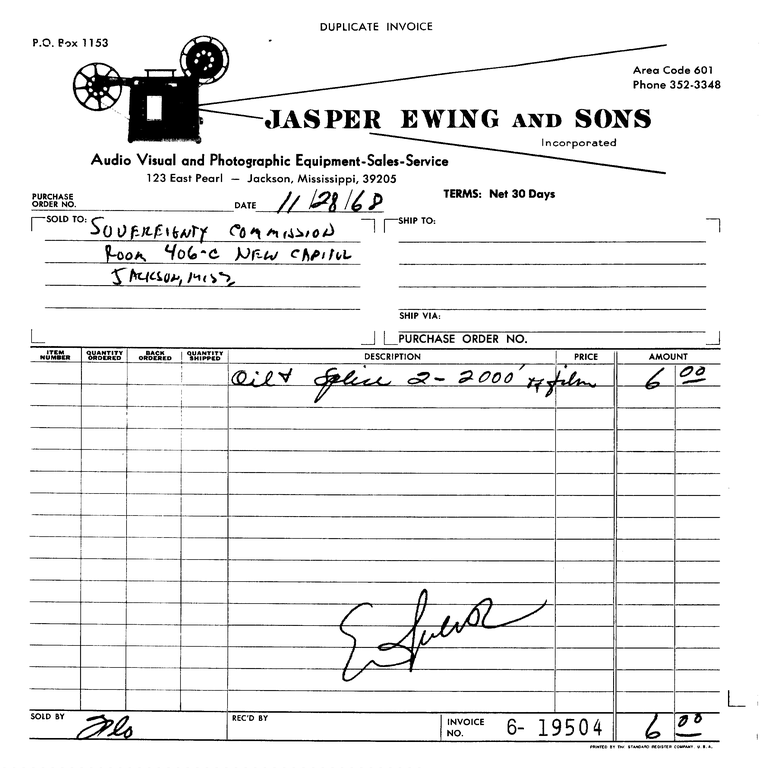 DUPLICATE INVOICE
P.O. Box 1153
Area Code 601
Phone 352-3348
JASPER EWING AND SONS
Incorporated
Audio Visual and Photographic Equipment-Sales-Service
123 East Pearl — Jackson, Mississippi, 39205
TERMS: Net 30 Days
PURCHASE ORDER NO. DATE 11/28/68
SOLD TO: SOVEREIGNTY COMMISSION
ROOM 406-C NEW CAPITOL
JACKSON, MISS,
SHIP TO:
SHIP VIA:
PURCHASE ORDER NO.
ITEM NUMBER QUANTITY ORDERED BACK ORDERED QUANTITY SHIPPED DESCRIPTION PRICE AMOUNT
Oil & Splice 2- 2000' film 6 00
SOLD BY REC'D BY INVOICE NO. 6- 19504 6 00
PRINTED BY THE STANDARD REGISTER COMPANY, U.S.A.